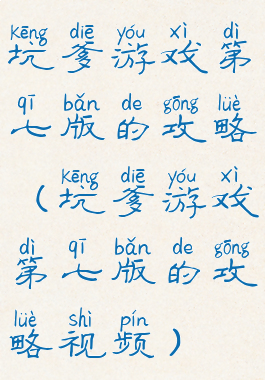 kēng diē yóu xì dì
坑爹游戏第
qī bǎn de gōng lüè
七版的攻略
kēng diē yóu xì
(坑爹游戏
dì qī bǎn de gōng
第七版的攻
lüè shì pín
略视频)